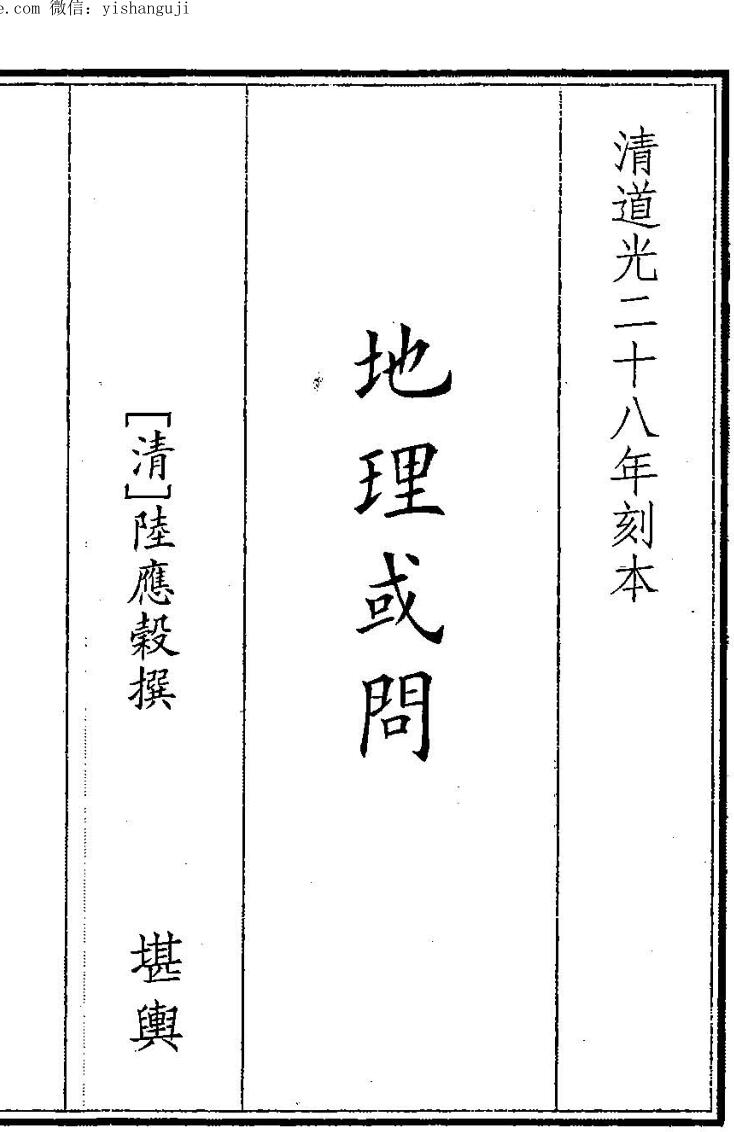 e.com 微信：yishanguji
清道光二十八年刻本
地理或問
［清］陸應穀撰
堪輿